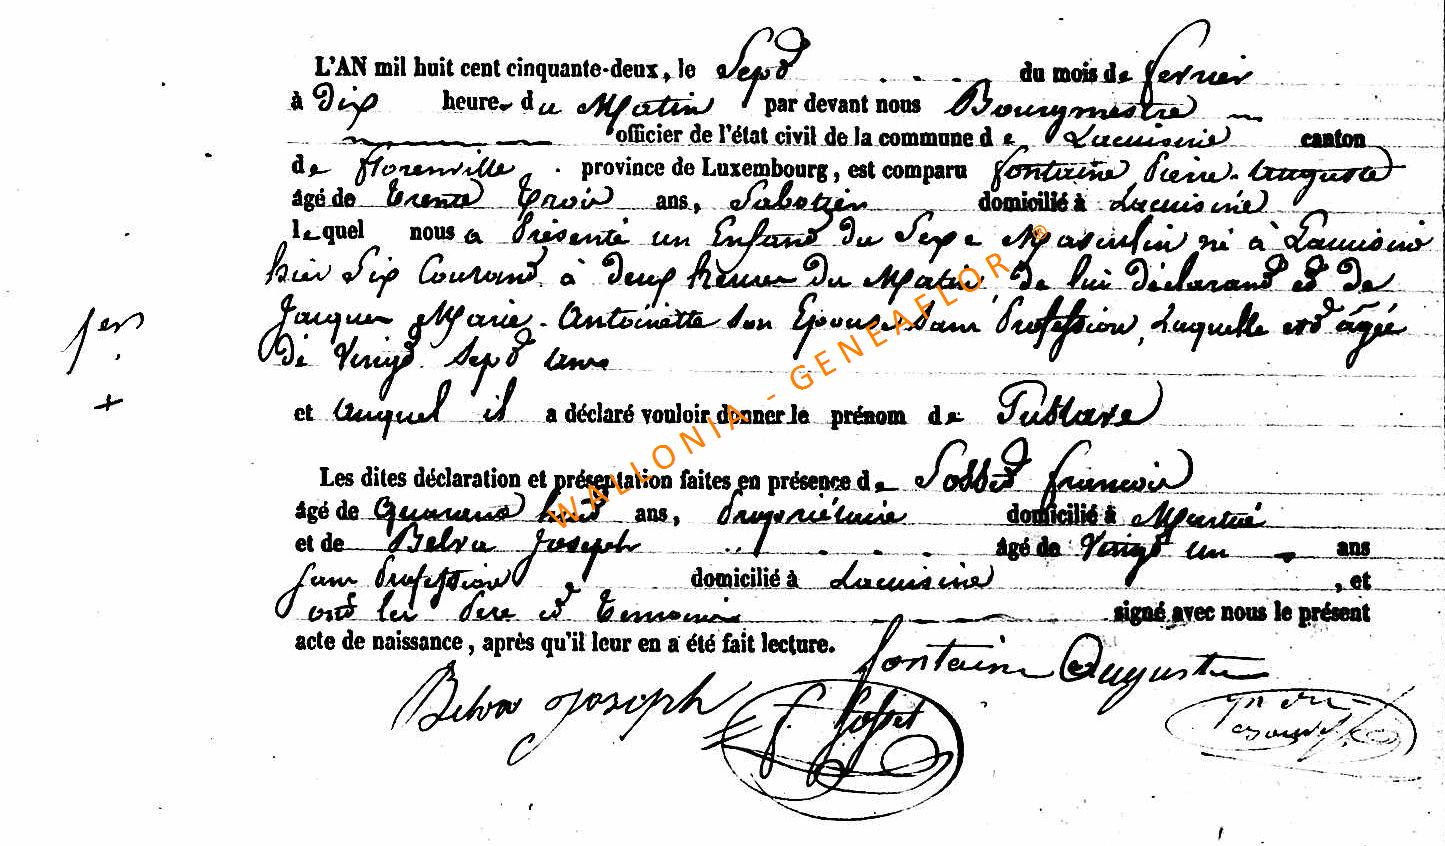 L'AN mil huit cent cinquante-deux, le Sept du mois de fevrier
à Dix heures du Matin par devant nous Bourgmestre
officier de l'état civil de la commune de Lacuisine canton
de florenville province de Luxembourg, est comparu fontaine Pierre-Auguste
âgé de trente trois ans, Sabotier domicilié à Lacuisine
lequel nous a présenté un Enfant du Sexe Masculin né à Lacuisine
hier Six Courant à deux heures du Matin, de lui déclarant et de
Jacques Marie-Antoinette son Epouse sans Profession, laquelle est âgée
de vingt Sept ans
1er
et auquel il a déclaré vouloir donner le prénom de Gustave
+
Les dites déclaration et présentation faites en présence de Sosset françois
âgé de Quarante huit ans, propriétaire domicilié à Martué
et de Belva Joseph âgé de vingt un ans
sans Profession domicilié à Lacuisine, et
ont les Père et temoins signé avec nous le présent
acte de naissance, après qu'il leur en a été fait lecture.
fontaine Auguste
Belva Joseph
f. Sosset
WALLONIA - GENEAFLOR ®